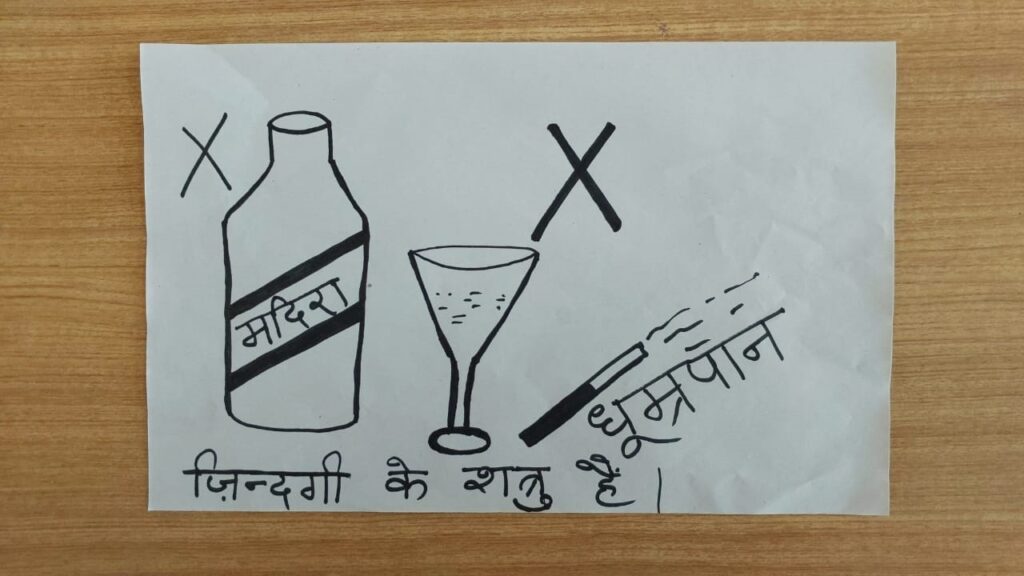 X
X
मदिरा
धूम्रपान
ज़िन्दगी के शत्रु हैं।